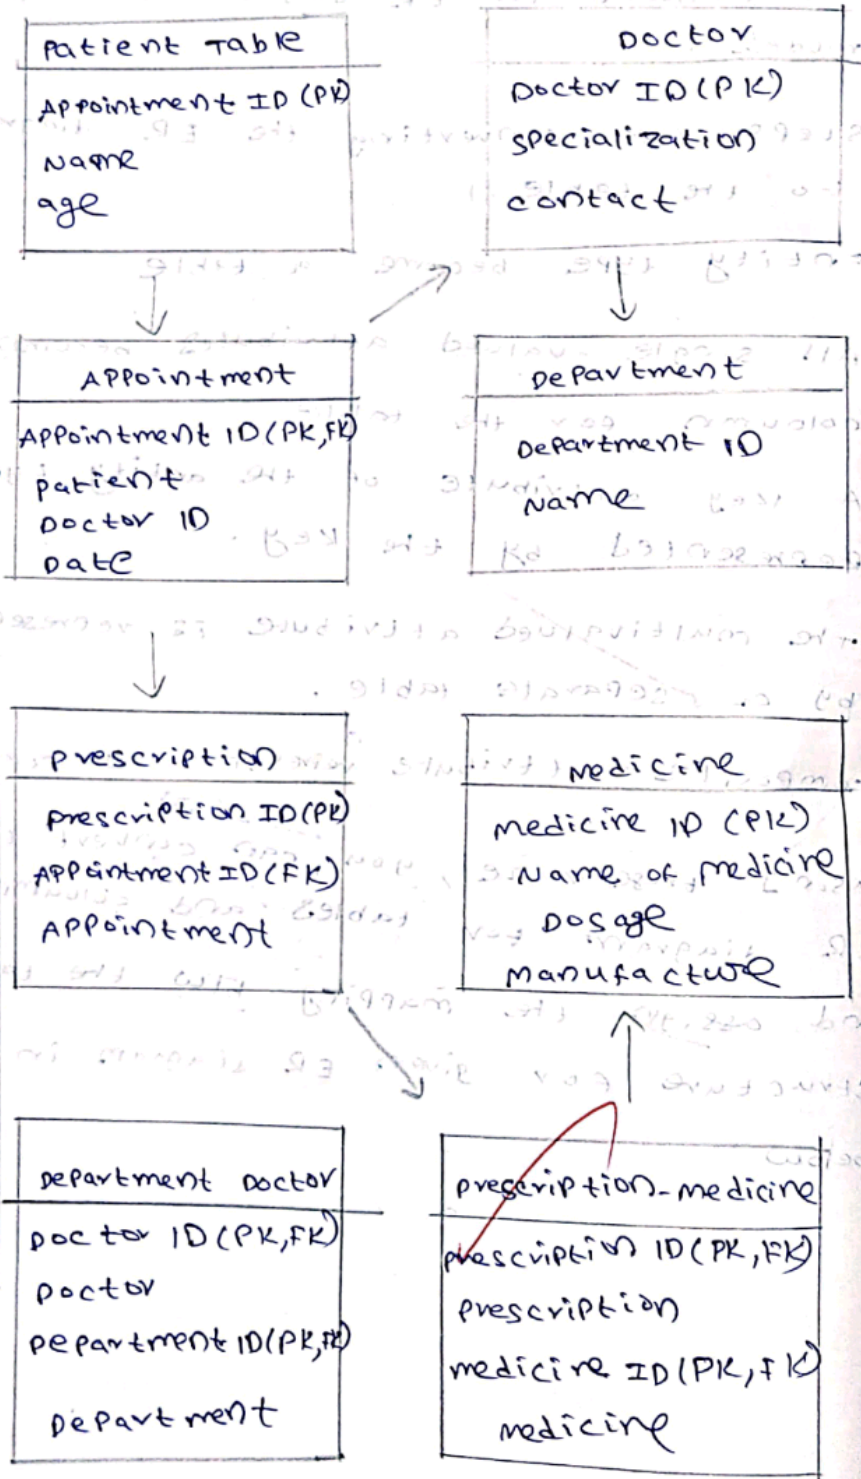 Patient Table
Appointment ID (PK)
Name
age
Doctor
Doctor ID (PK)
specialization
contact
Appointment
Appointment ID (PK,FK)
patient
Doctor ID
Date
Department
Department ID
Name
prescription
prescription ID (PK)
Appointment ID (FK)
Appointment
medicine
medicine ID (PK)
Name of medicine
Dosage
manufacture
Department Doctor
Doctor ID (PK,FK)
Doctor
Department ID (PK,FK)
Department
prescription-medicine
prescription ID (PK,FK)
prescription
medicine ID (PK,FK)
medicine